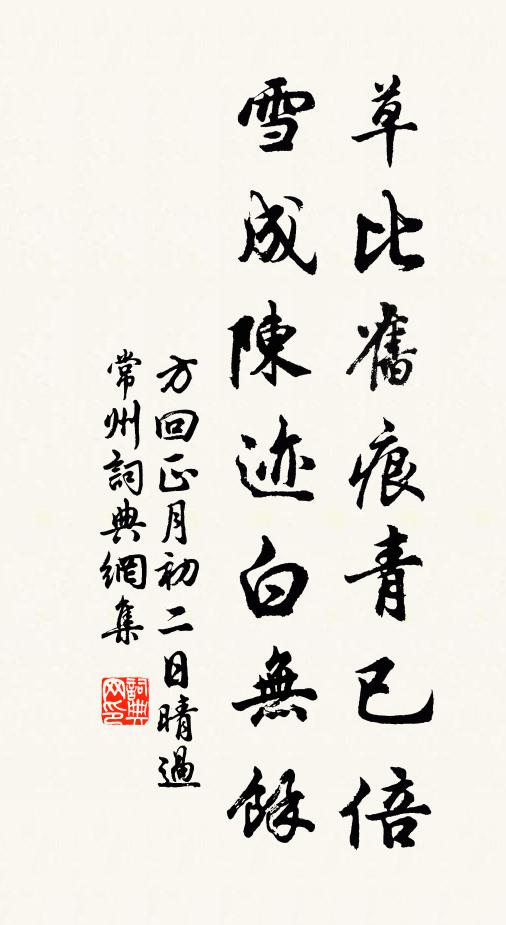 草比舊痕青已倍
雪成陳迹白無餘
方回正月初二日晴過
常州詞典網集
詞典网印